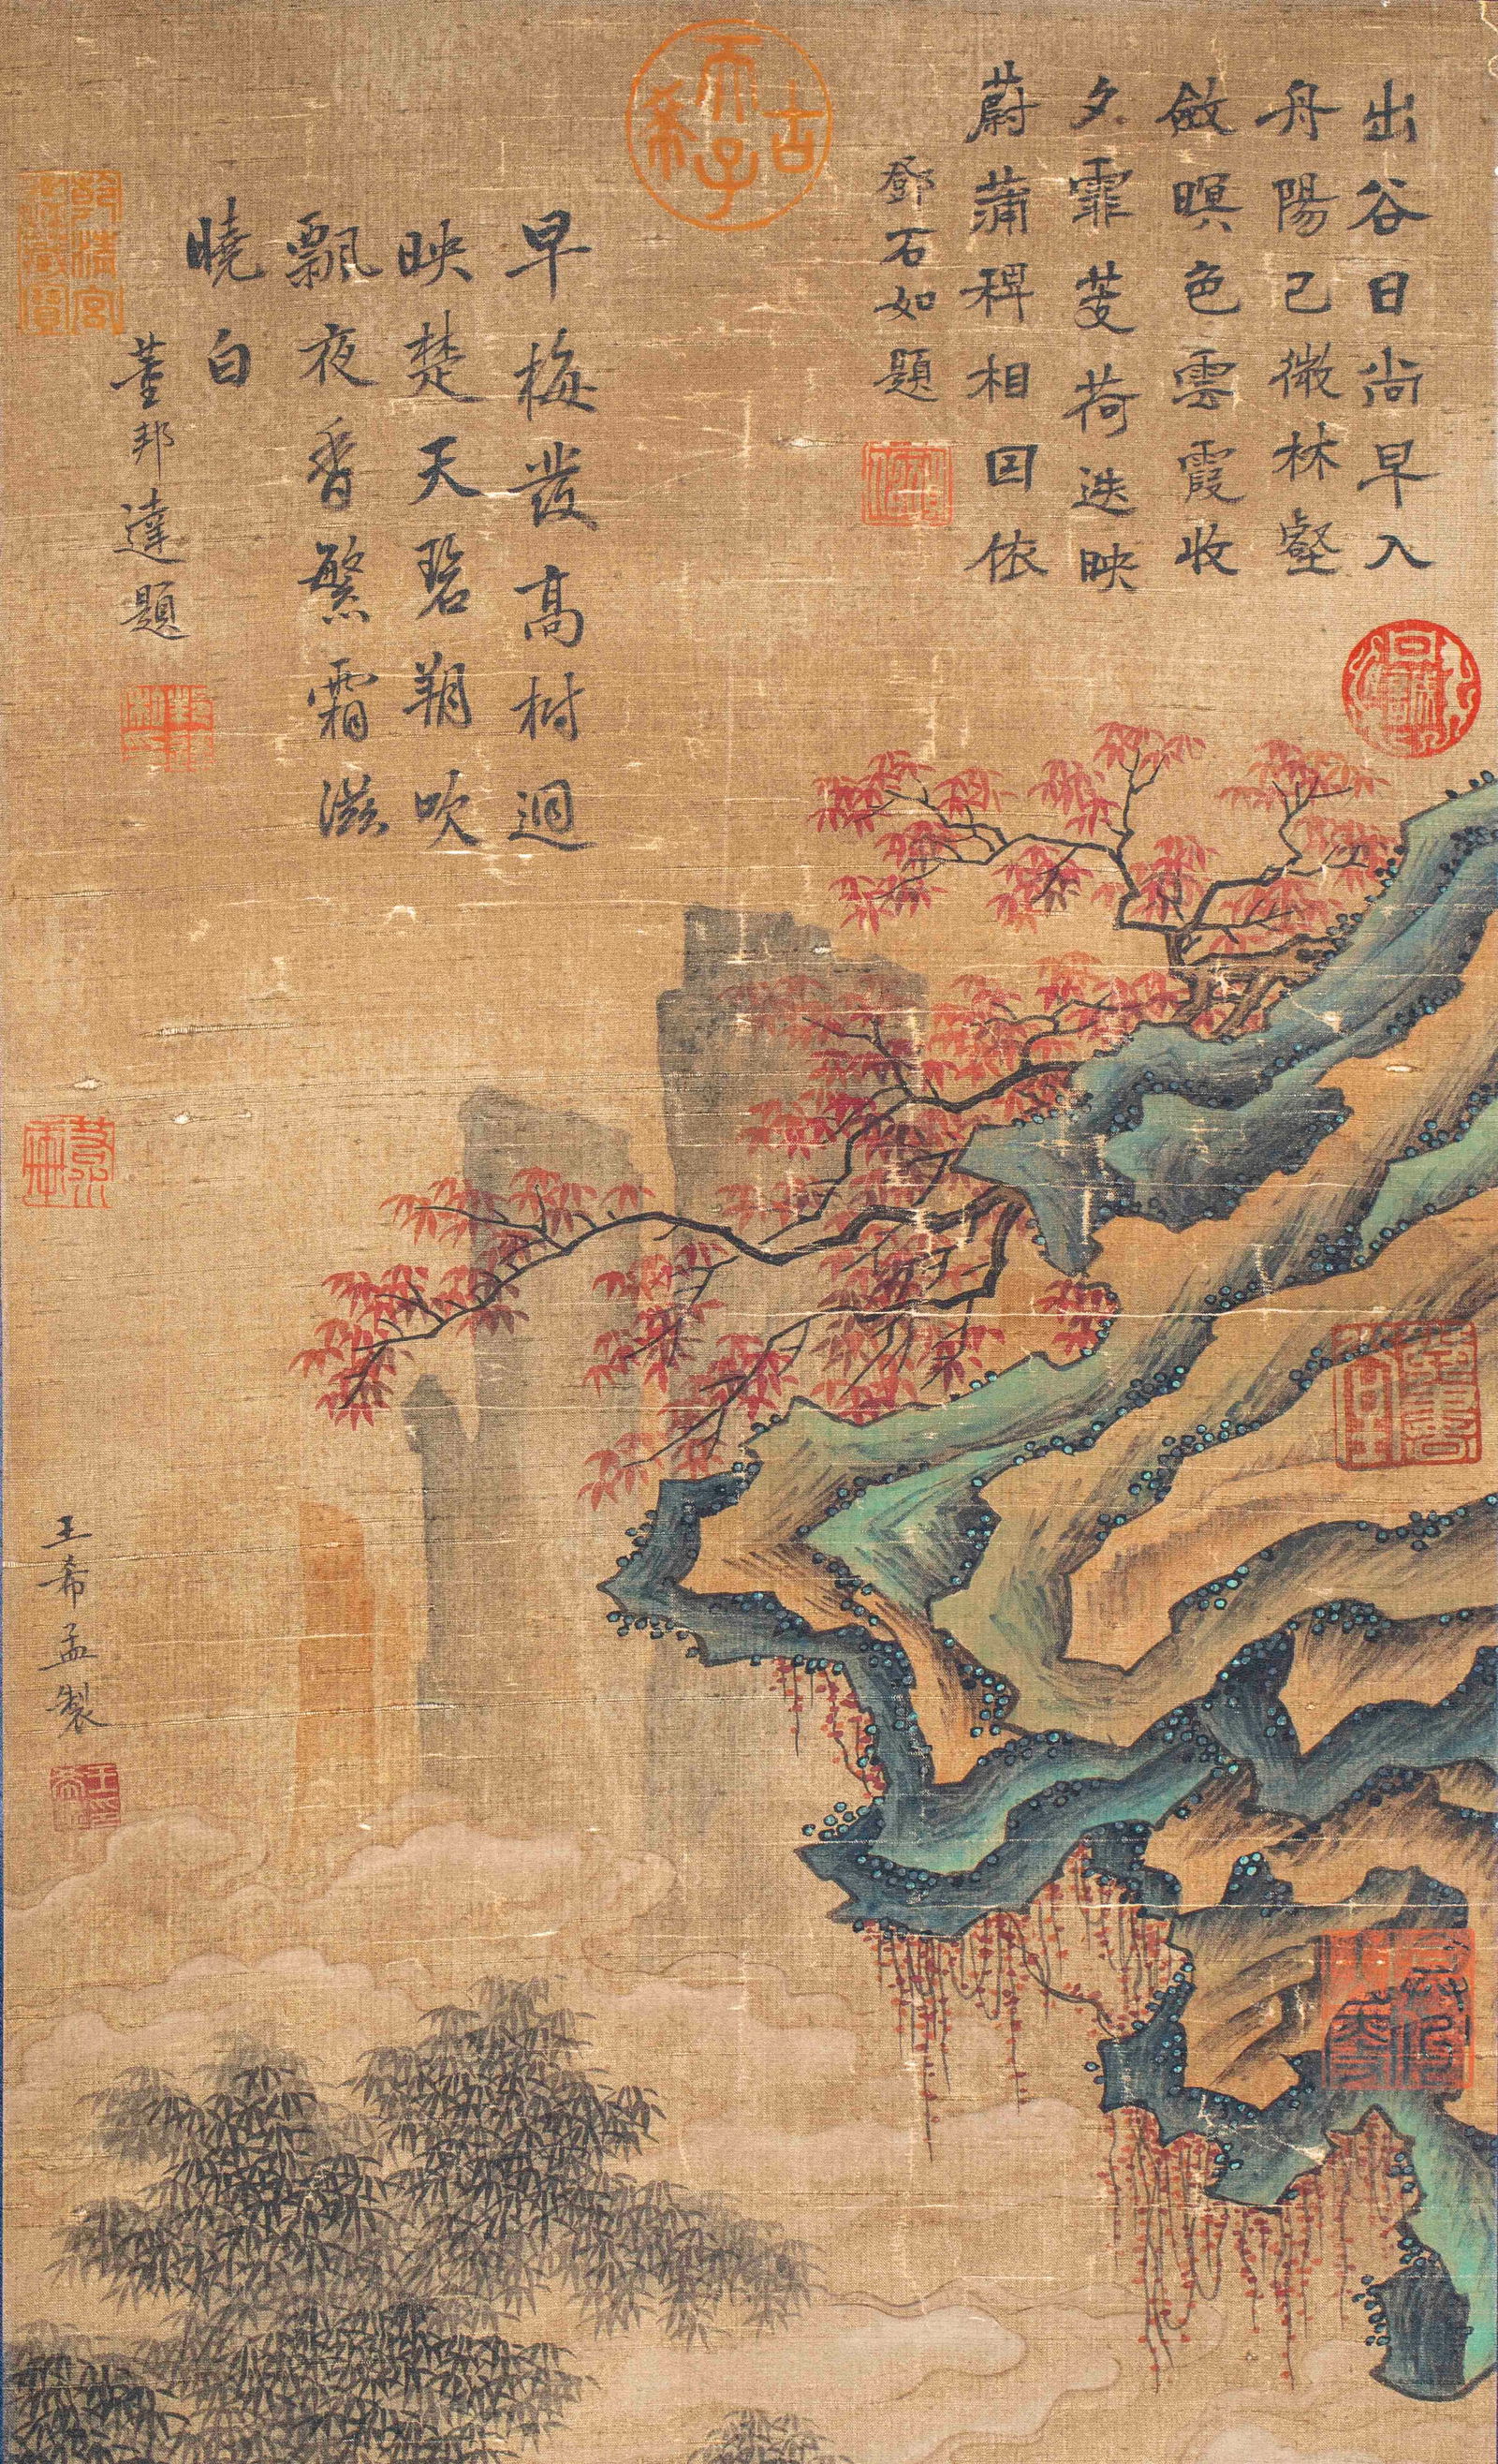 出谷日尚早入
舟陽已微林壑
斂暝色雲霞收
夕霏芰荷迭映
蔚蒲稗相因依
鄧石如題
古希天子
早梅發高樹迥
映楚天碧朔吹
飄夜香繁霜滋
曉白
董邦達題
乾清宮鑒藏寶
王希孟製